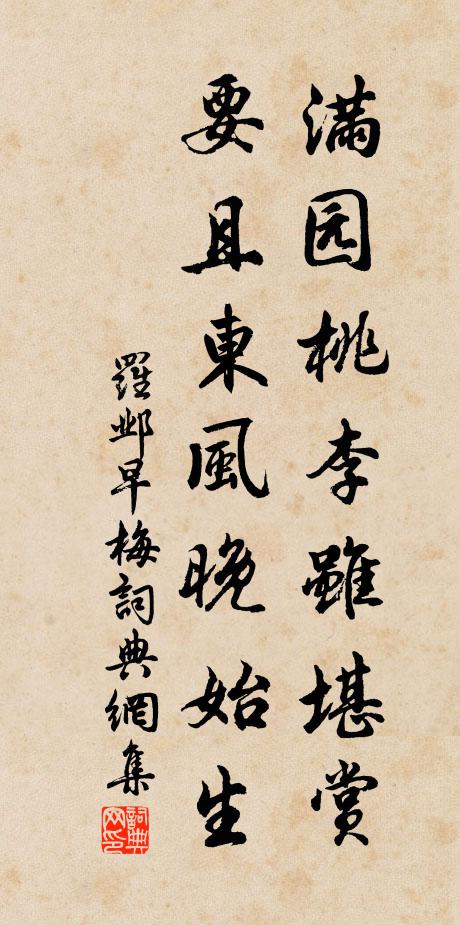 滿园桃李雖堪賞
要且東風晚始生
羅邺早梅詞典網集
詞典网印